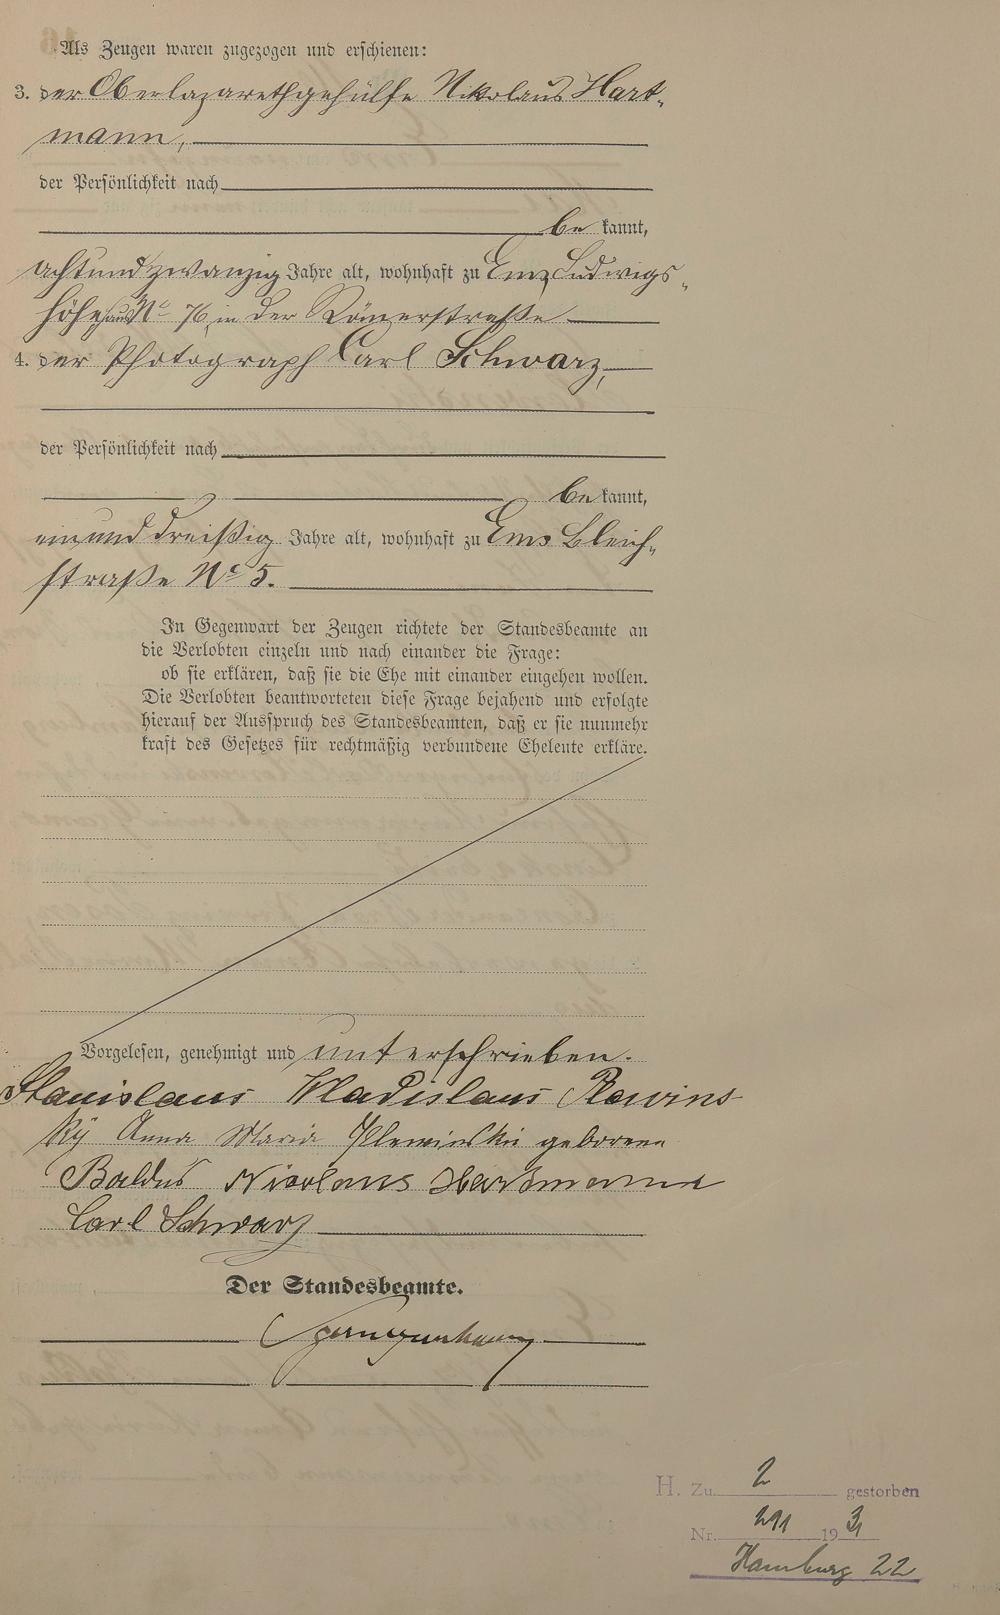 Als Zeugen waren zugezogen und erschienen:
3. der Oberlazarethgehülfe Nikolaus Hart-
mann,
der Persönlichkeit nach
be kannt,
achtundzwanzig Jahre alt, wohnhaft zu Ems, Ludwigs-
höhe, Haus No 76 in der Römerstraße
4. der Photograph Carl Schwarz,
der Persönlichkeit nach
be kannt,
einunddreißig Jahre alt, wohnhaft zu Ems Bleich-
straße No 5.
In Gegenwart der Zeugen richtete der Standesbeamte an
die Verlobten einzeln und nach einander die Frage:
ob sie erklären, daß sie die Ehe mit einander eingehen wollen.
Die Verlobten beantworteten diese Frage bejahend und erfolgte
hierauf der Ausspruch des Standesbeamten, daß er sie nunmehr
kraft des Gesetzes für rechtmäßig verbundene Eheleute erkläre.
Vorgelesen, genehmigt und unterschrieben.
Stanislaus Wladislaus Plewins
ky Anna Maria Plewinski geborene
Baldus Nicolaus Hartmann
Carl Schwarz
Der Standesbeamte.
H. Zu 2 gestorben
Nr. 291 1931
Hamburg 22